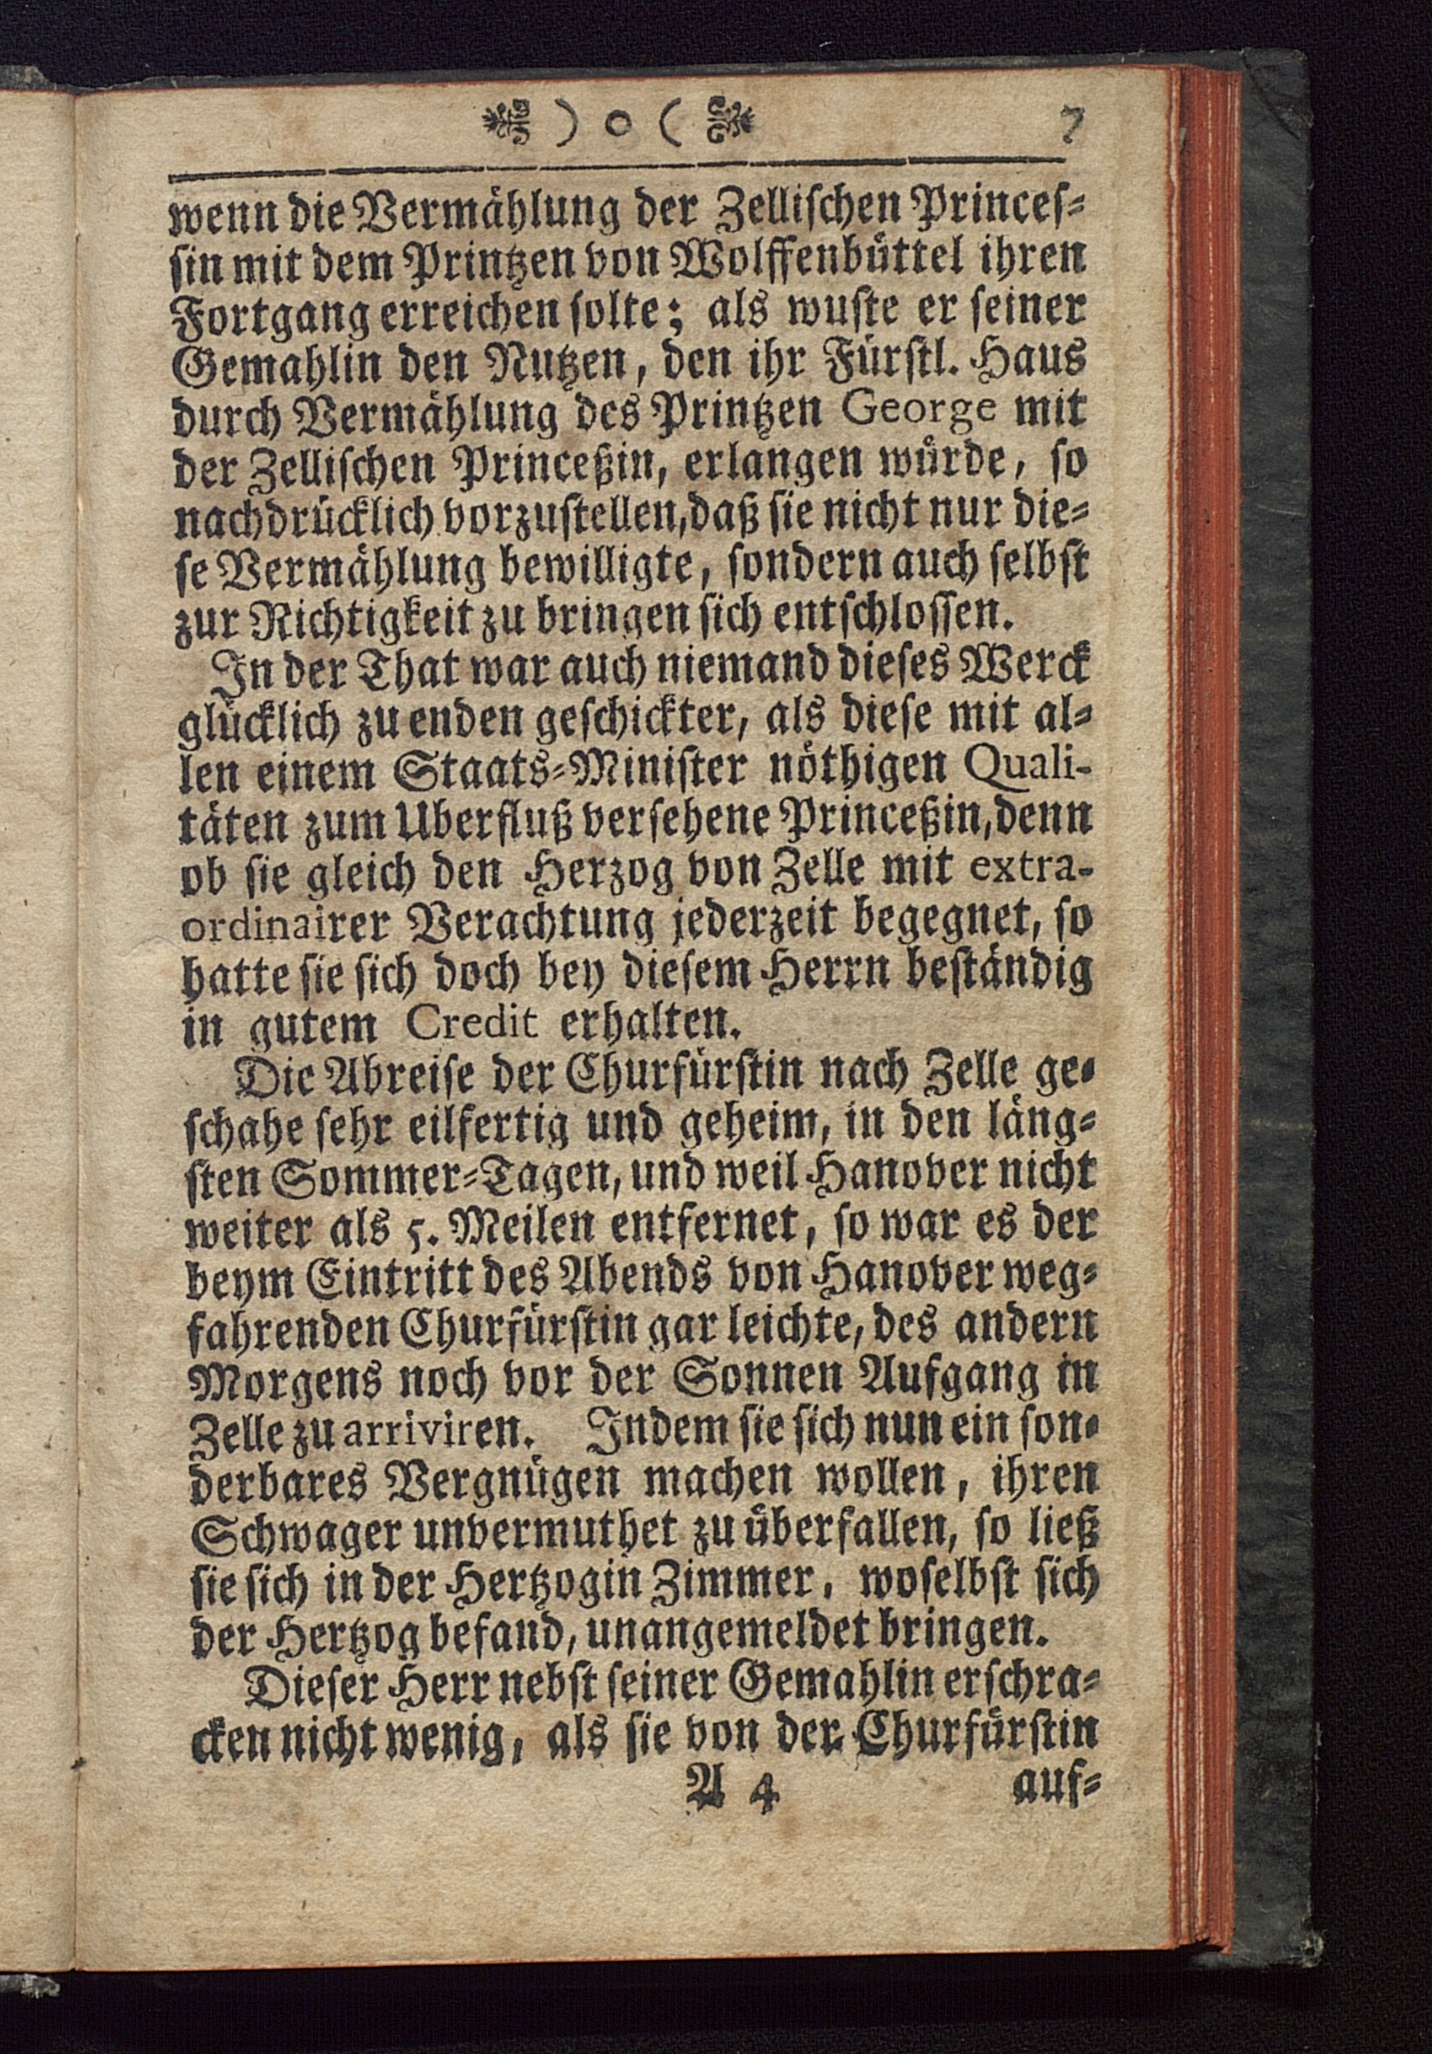 ) o ( 7
wenn die Vermählung der Zellischen Princes-
sin mit dem Printzen von Wolffenbüttel ihren
Fortgang erreichen solte; als wuste er seiner
Gemahlin den Nutzen, den ihr Fürstl. Haus
durch Vermählung des Printzen George mit
der Zellischen Princeßin, erlangen würde, so
nachdrücklich vorzustellen, daß sie nicht nur die-
se Vermählung bewilligte, sondern auch selbst
zur Richtigkeit zu bringen sich entschlossen.
In der That war auch niemand dieses Werck
glücklich zu enden geschickter, als diese mit al-
len einem Staats-Minister nöthigen Quali-
täten zum Uberfluß versehene Princeßin, denn
ob sie gleich den Herzog von Zelle mit extra-
ordinairer Verachtung jederzeit begegnet, so
hatte sie sich doch bey diesem Herrn beständig
in gutem Credit erhalten.
Die Abreise der Churfürstin nach Zelle ge-
schahe sehr eilfertig und geheim, in den läng-
sten Sommer-Tagen, und weil Hanover nicht
weiter als 5. Meilen entfernet, so war es der
beym Eintritt des Abends von Hanover weg-
fahrenden Churfürstin gar leichte, des andern
Morgens noch vor der Sonnen Aufgang in
Zelle zu arriviren. Indem sie sich nun ein son-
derbares Vergnügen machen wollen, ihren
Schwager unvermuthet zu überfallen, so ließ
sie sich in der Hertzogin Zimmer, woselbst sich
der Hertzog befand, unangemeldet bringen.
Dieser Herr nebst seiner Gemahlin erschra-
cken nicht wenig, als sie von der Churfürstin
A 4 auf-